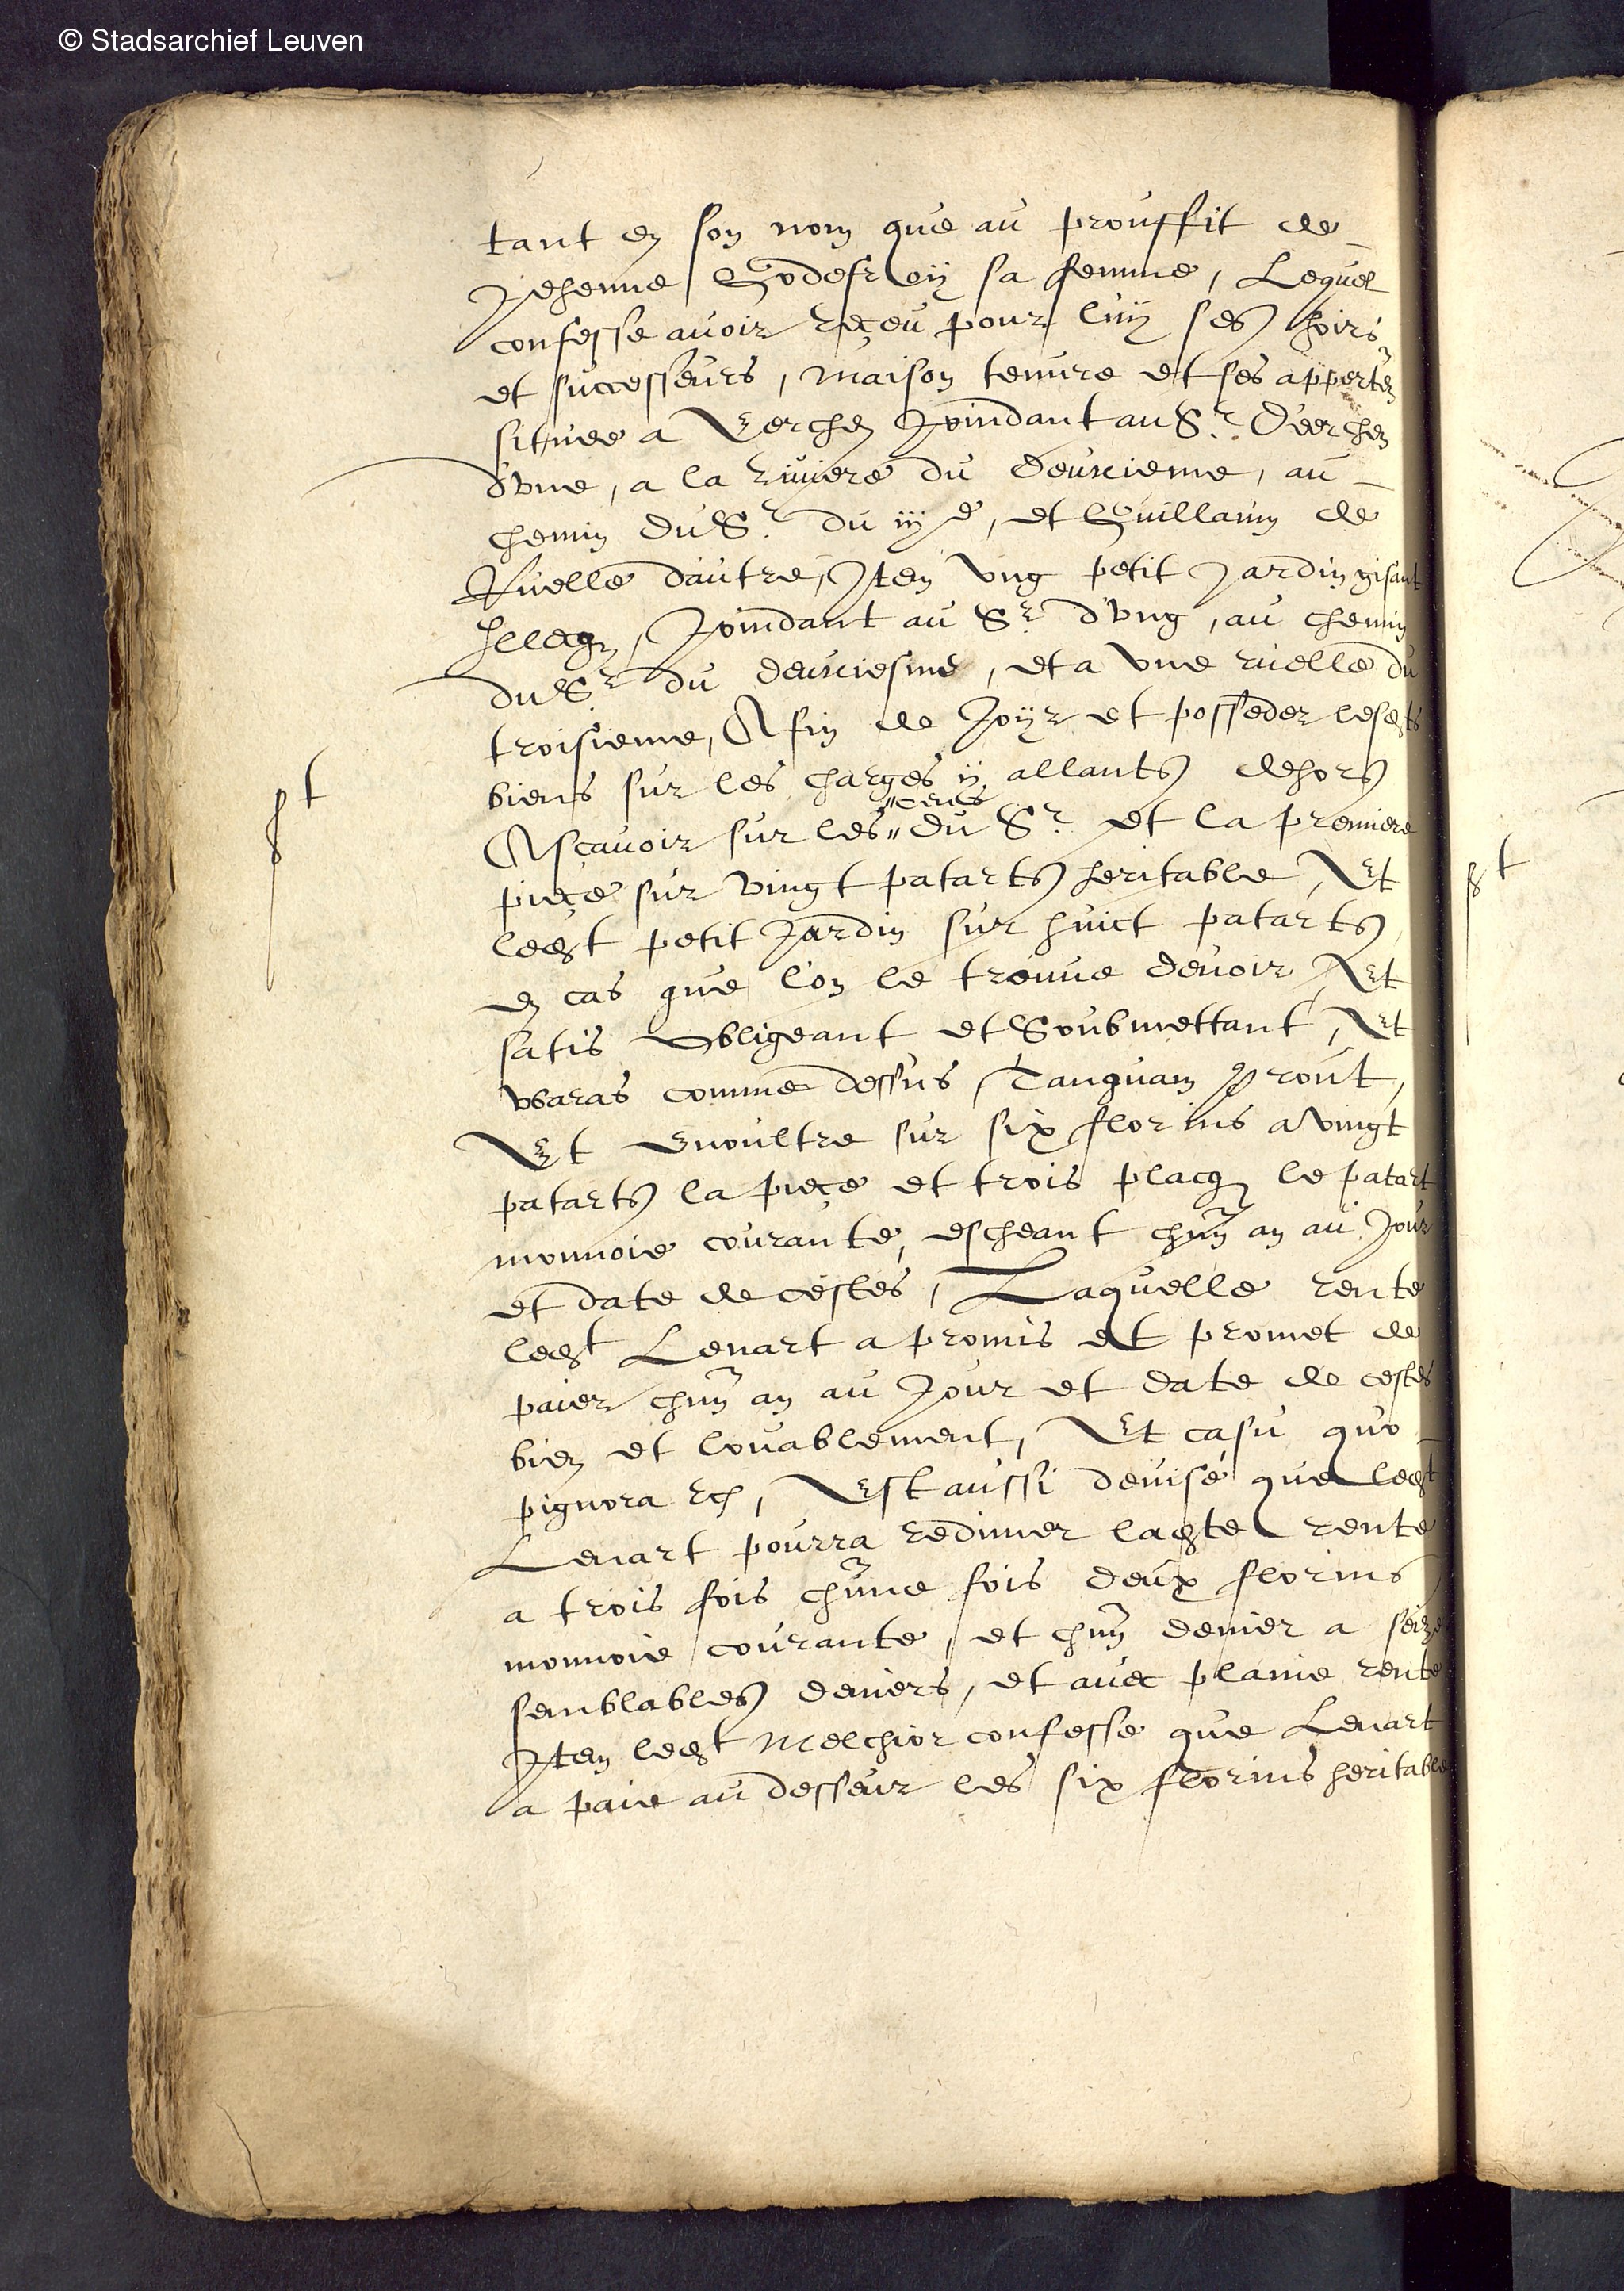 © Stadsarchief Leuven
tant en son nom que au prouffit de
Jehenne Godefroÿ sa femme, Lequel
confesse avoir reçeu pour luÿ ses hoirs
et successeurs, maison tenure et ses apperten
situee a Joindant au Sr. D'erchen
d'vne, a la riviere du deuxieme, au
chemin du Sr. du iije, et Guillaum de
Ruelle d'autre, Item vng petit Jardin gisant
illecq, Joindant au Sr. d'vng, au chemin
du Sr. du deuxiesme, et a vne ruelle du
troisieme, Afin de Joÿr et posseder lesdts
biens sur les charges ÿ allants dehors
Ascavoir sur les "cens" du Sr. et la premiere
pieçe sur vingt patarts heritable, Et
ledt petit Jardin sur huict patarts
en cas que l'on le treuve devoir, Et
satis obligeant et Soubmettant, Et
waras comme dessus, Tanquam prout,
Et enoultre sur six florins a vingt
patarts la pieçe et trois placq le patart
monnoie courante, escheant chun an au Jour
et date de cestes, Laquelle rente
ledt Lenart a promis et promet de
paier chun an au Jour et date de cestes
bien et louablement, Et casu quo
pignora etc, Est aussi devisé que ledt
Lenart pourra redimer ladte rente
a trois fois chune fois deux florins
monnoie courante, et chun denier a seize
semblables deniers, et avec plaine rente
Item ledt Melchior confesse que Lenart
a paie au desseur les six florins heritables